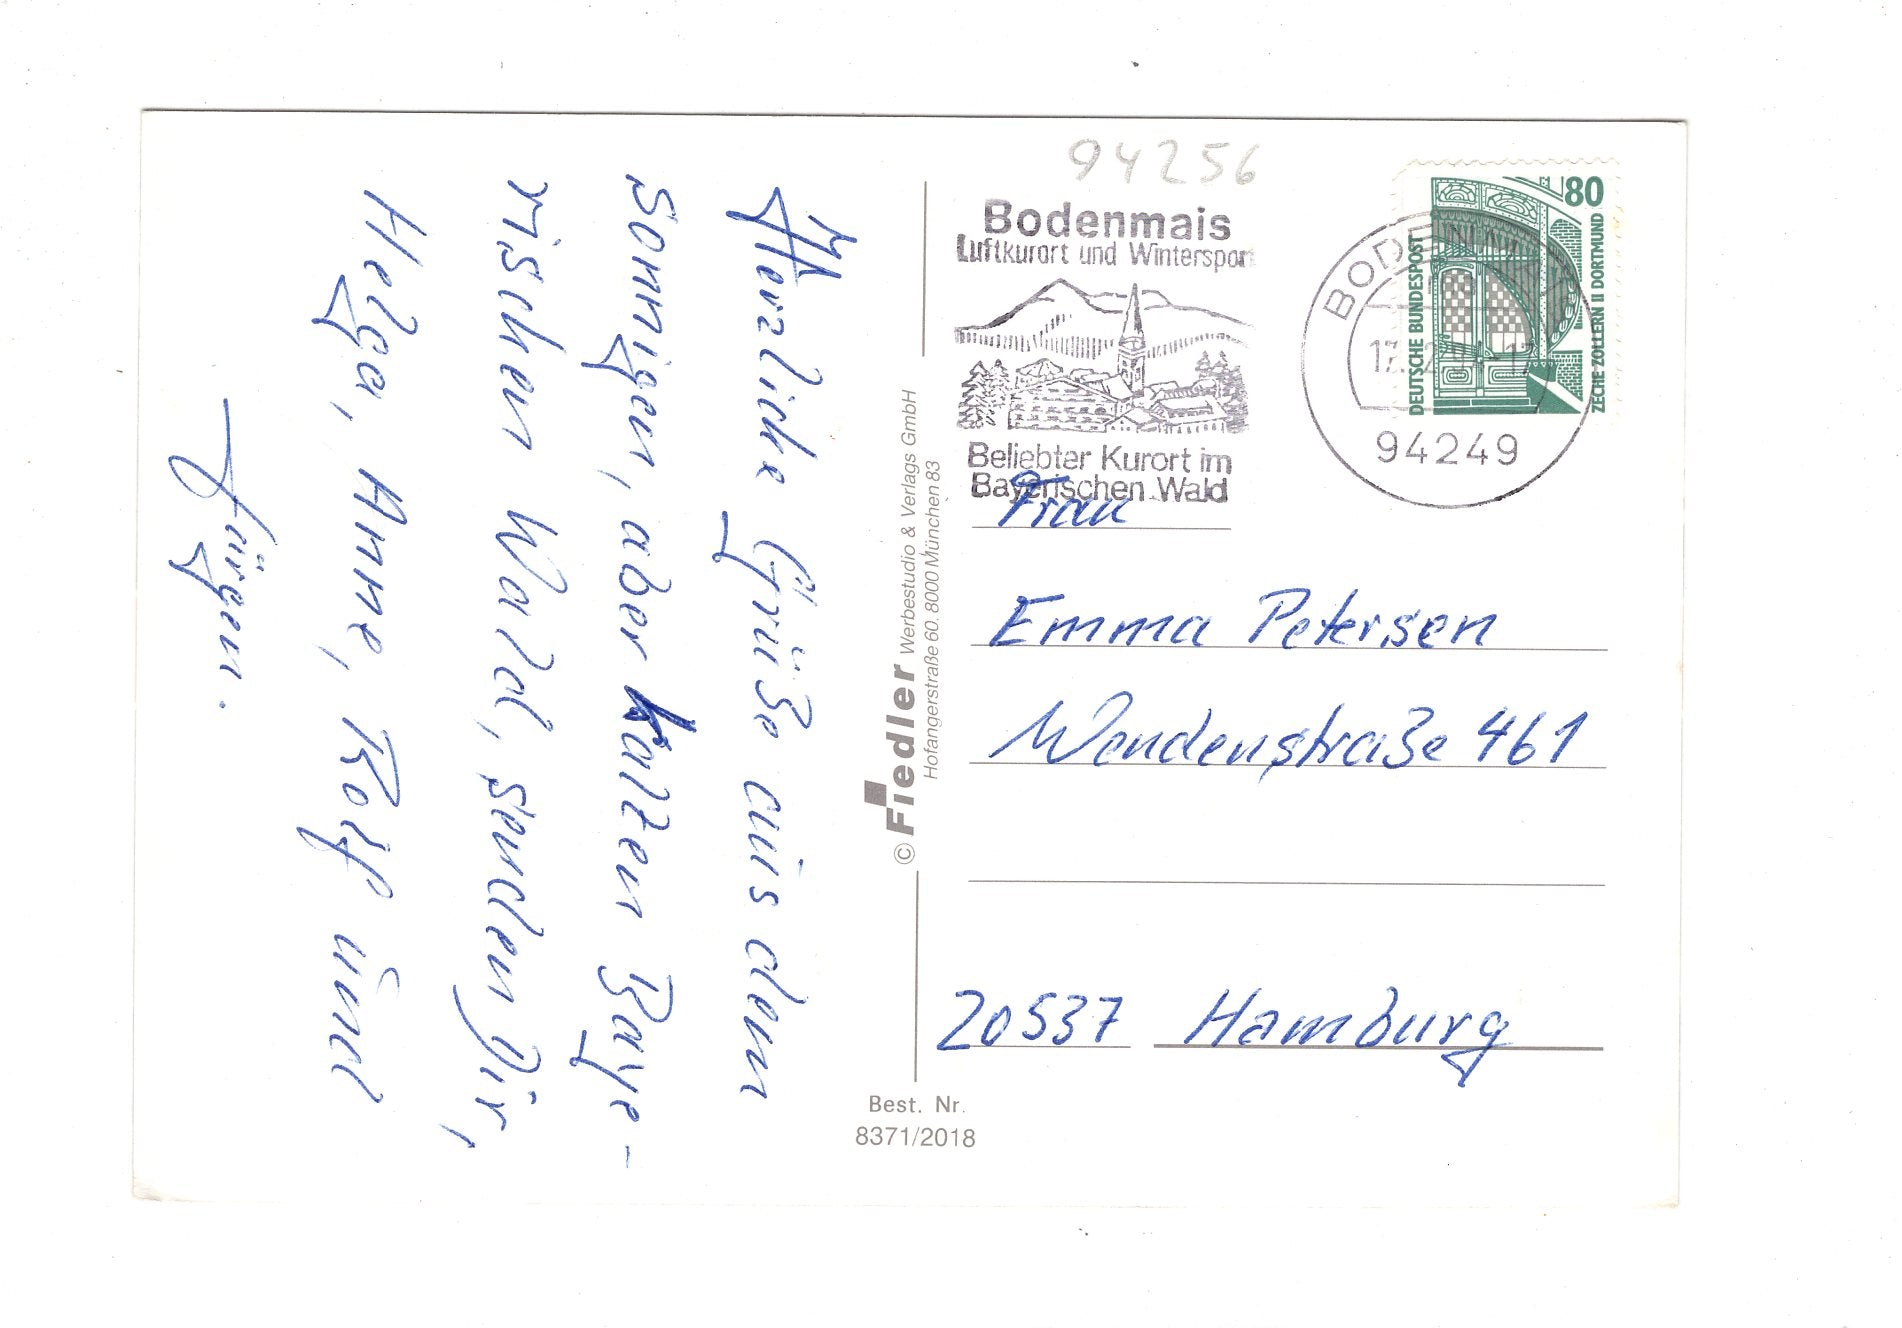 Herzliche Grüße aus dem
sonnigen, aber kalten Baye-
rischen Wald, senden Dir,
Helga, Anne, Rolf und
Jürgen.
© Fiedler Werbestudio & Verlags GmbH
Hofangerstraße 60. 8000 München 83
Best. Nr.
8371/2018
94256
Bodenmais
Luftkurort und Wintersport
Beliebter Kurort im
Bayerischen Wald
80
DEUTSCHE BUNDESPOST
ZECHE ZOLLERN II DORTMUND
94249
Frau
Emma Petersen
Wendenstraße 461
20537 Hamburg